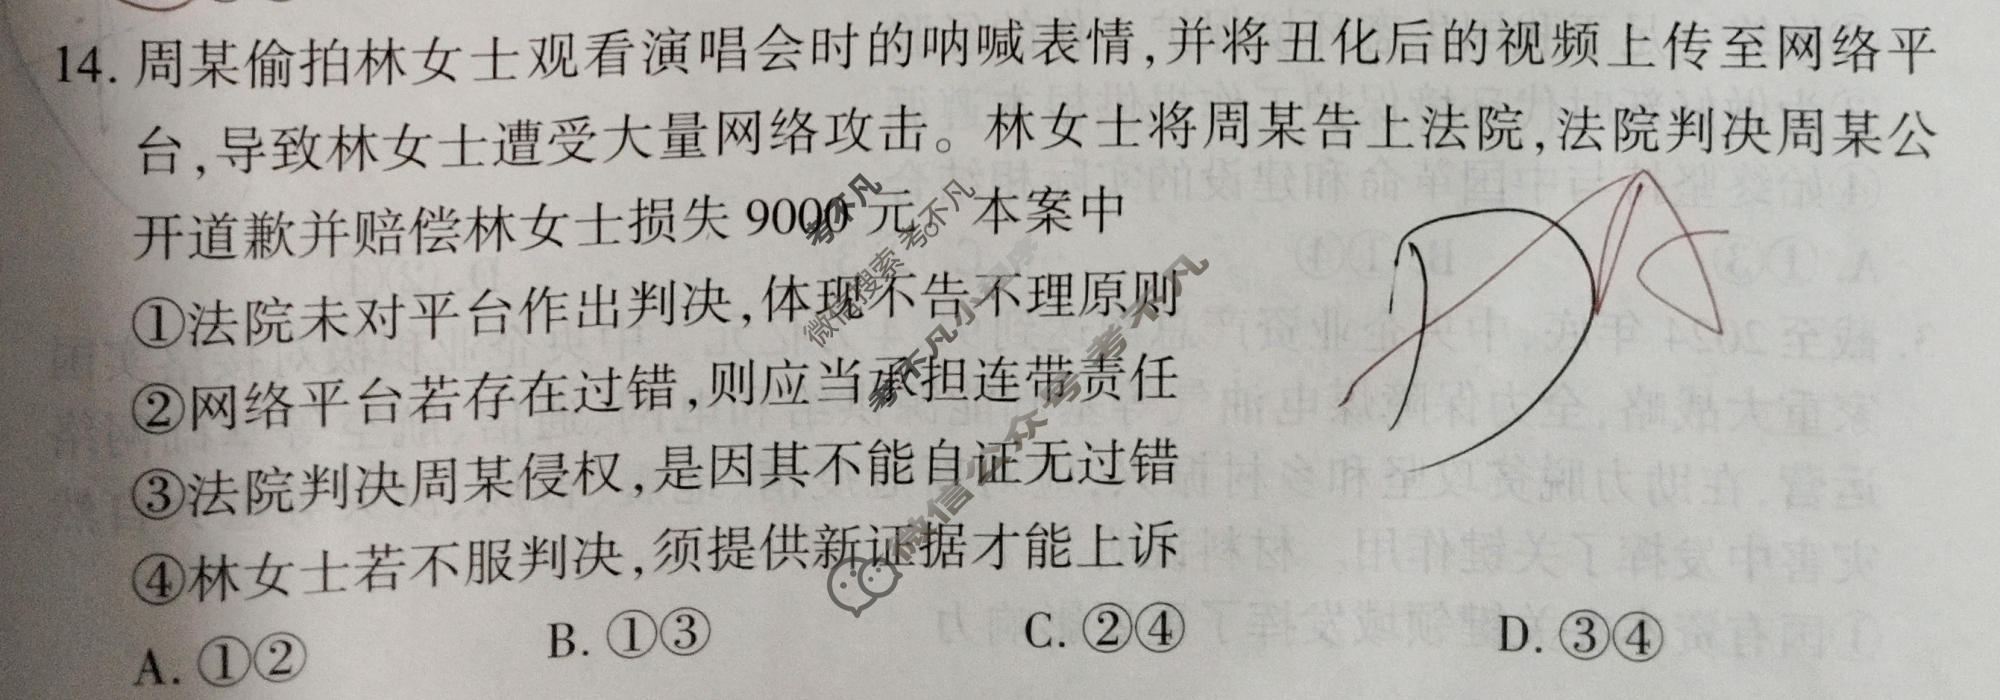 14. 周某偷拍林女士观看演唱会时的呐喊表情,并将丑化后的视频上传至网络平
台,导致林女士遭受大量网络攻击。林女士将周某告上法院,法院判决周某公
开道歉并赔偿林女士损失9000元。本案中
①法院未对平台作出判决,体现不告不理原则
②网络平台若存在过错,则应当承担连带责任
③法院判决周某侵权,是因其不能自证无过错
④林女士若不服判决,须提供新证据才能上诉
A. ①② B. ①③ C. ②④ D. ③④
D A
考不凡
微信搜索 考不凡
考不凡小程序
微信公众号 考不凡